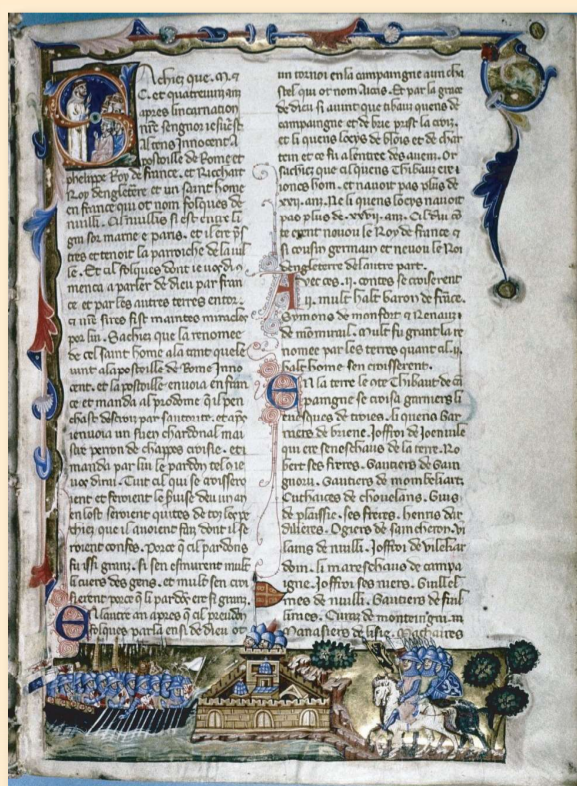 Sachiez que. M. &
C. et quatreuinz anz
apres lincarnation
nr̄e sengnor iesucst
al tens Innocent. A
postoille de Rome et
phelippe Roy de france. et Ricchart
Roy dengletere et un saint home
en france qui ot nom folques de
nuilli. Cil nuillis si est entre li
gni sor marne e paris. et il ere p̄s
tres et tenoit la parroiche de la uil
le. Et cil folques dont ie uos di. 9
mença a parler de dieu par fran
ce et par les autres terres entor.
& nr̄e sires fist maintes miracles
por lui. Sachiez que la renomee
de cel saint home ala tant quele
uint a la postoille de Rome Inno
cent. et la postoille enuoia en fran
ce et manda al prodome q̄ il
chast des croiz par sautorite. et apres
i enuoia un suen chardonal mai
stre perron de chappes croisie. et
manda par lui le pardon tel 9 ie
uos dirai. Tuit cil qui se croisero
ient et feroient le seruise deu un an
en lost seroient quites de toz les pe
chiez que il auoient faiz dont il se
roient confes. Porce q̄ cil pardons
fu issi granz. si sen esmurent mult
li cuers des genz. et mult sen croi
sierent porce q̄ li pardons ere si granz.
En lautre an apres q̄ cil preudom
folques parla ensi de dieu ot
un tornoi en la campaingne a un cha
stel qui ot nom Aicis. Et par la grace
de dieu si auint que tibauz quens de
campaingne et de brie prist la croiz.
et li quens loeys de blois et de char
tein et ce fu a lentree des auenz. Or
sachiez que cil quens Thibauz ere
iones hom. et nauoit pas plus de
xxij. anz. Ne li quens loeys nauoit
pas plus de. xxvij. anz. Cil dui con
te erent neuou le Roy de france &
si cousin germain et neuou le Roi
dengleterre de lautre part.
Auec ces. ij. contes se croiserent
ij. mult halt baron de france.
Symons de monfort & Renauz
de monmirail. Mult fu granz la re
nomee par les terres quant cil. ij.
halt home sen croisserent.
En la terre le cōte Thibaut de cā
paingne se croisa garniers li
euesques de troies. li quens Gar
tiers de briene. Joffroi de Joenuile
qui ere seneschaus de la terre. Ro
bert ses freres. Gautiers de Gain
gnoru. Gautiers de mombeliart.
Euthaices de chouelans. Guis
de plaissie. ses freres. henris dar
dilieres. Ogiers de saincheron. Vi
lains de nuilli. Joffroi de vilehar
doin. li mareschaus de campa
igne. Joffroi ses niers. Guillel
mes de nuilli. Gautiers de fiul
lines. Euraz de monteigni.
Manasiers de lisle. Machaires